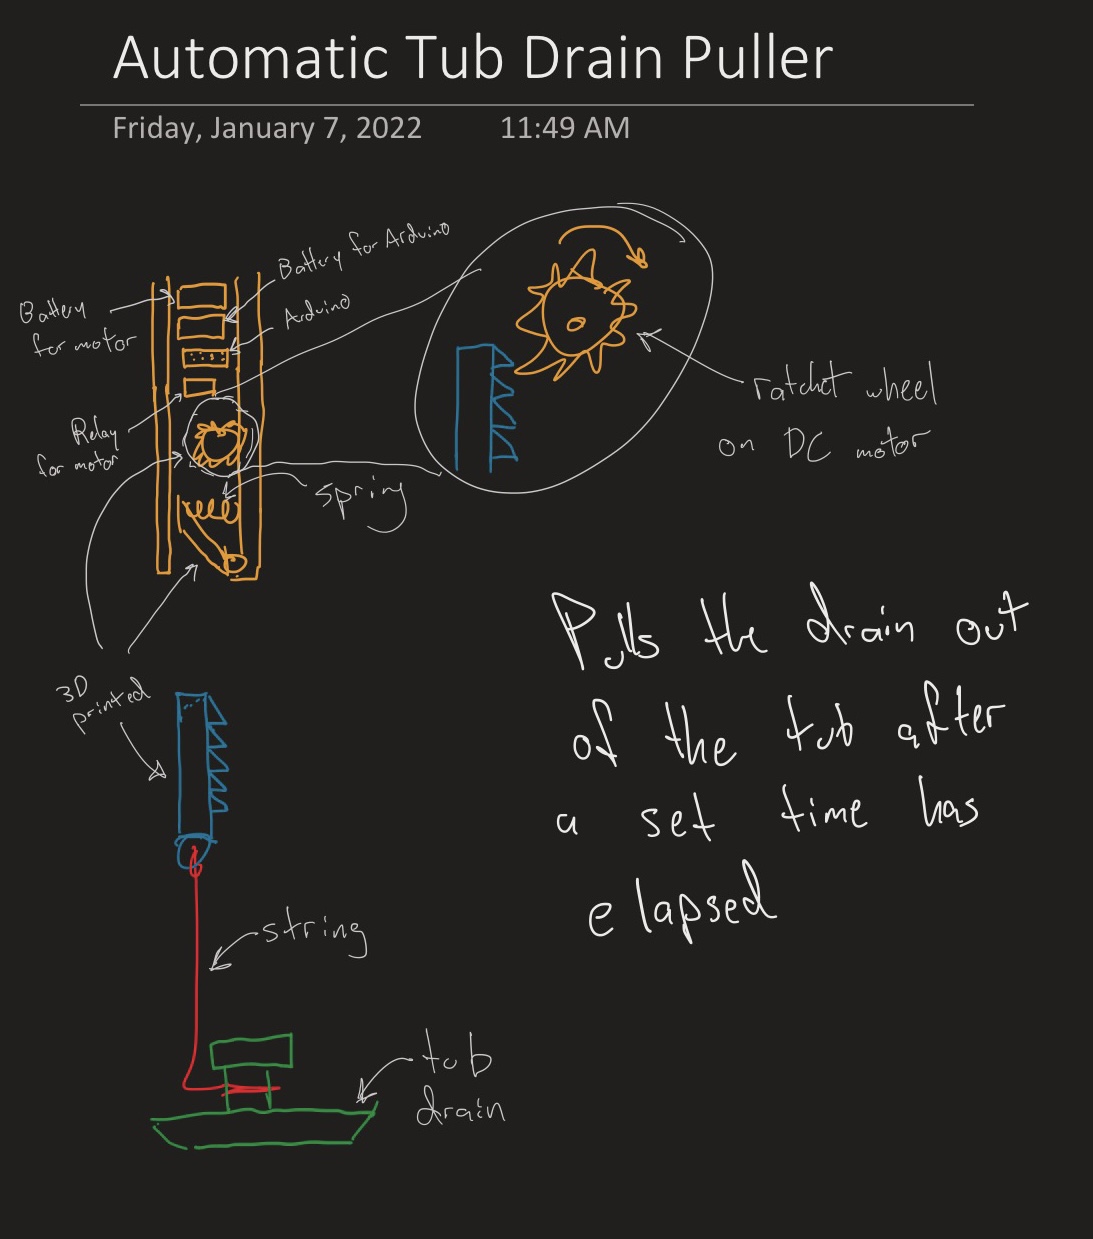 Automatic Tub Drain Puller
Friday, January 7, 2022 11:49 AM
Battery for Arduino
Battery
for motor
Arduino
ratchet wheel
on DC motor
Relay
for motor
spring
Pulls the drain out
of the tub after
a set time has
elapsed
3D
printed
string
tub
drain